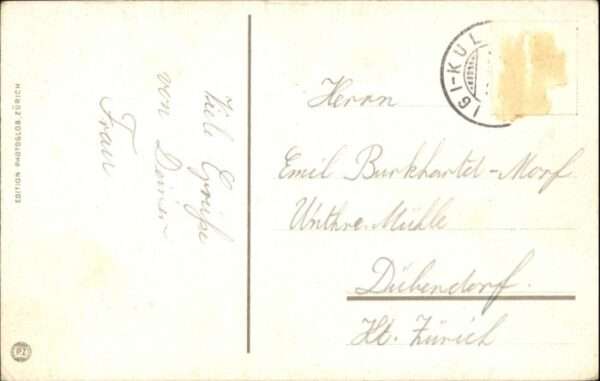 EDITION PHOTOGLOB, ZÜRICH
Viele Grüße
von Deiner
Frau
IGI-KUL
Herrn
Emil Burkhartel-Morf
Unthre Mühle
Dübendorf.
Kt. Zürich
PZ